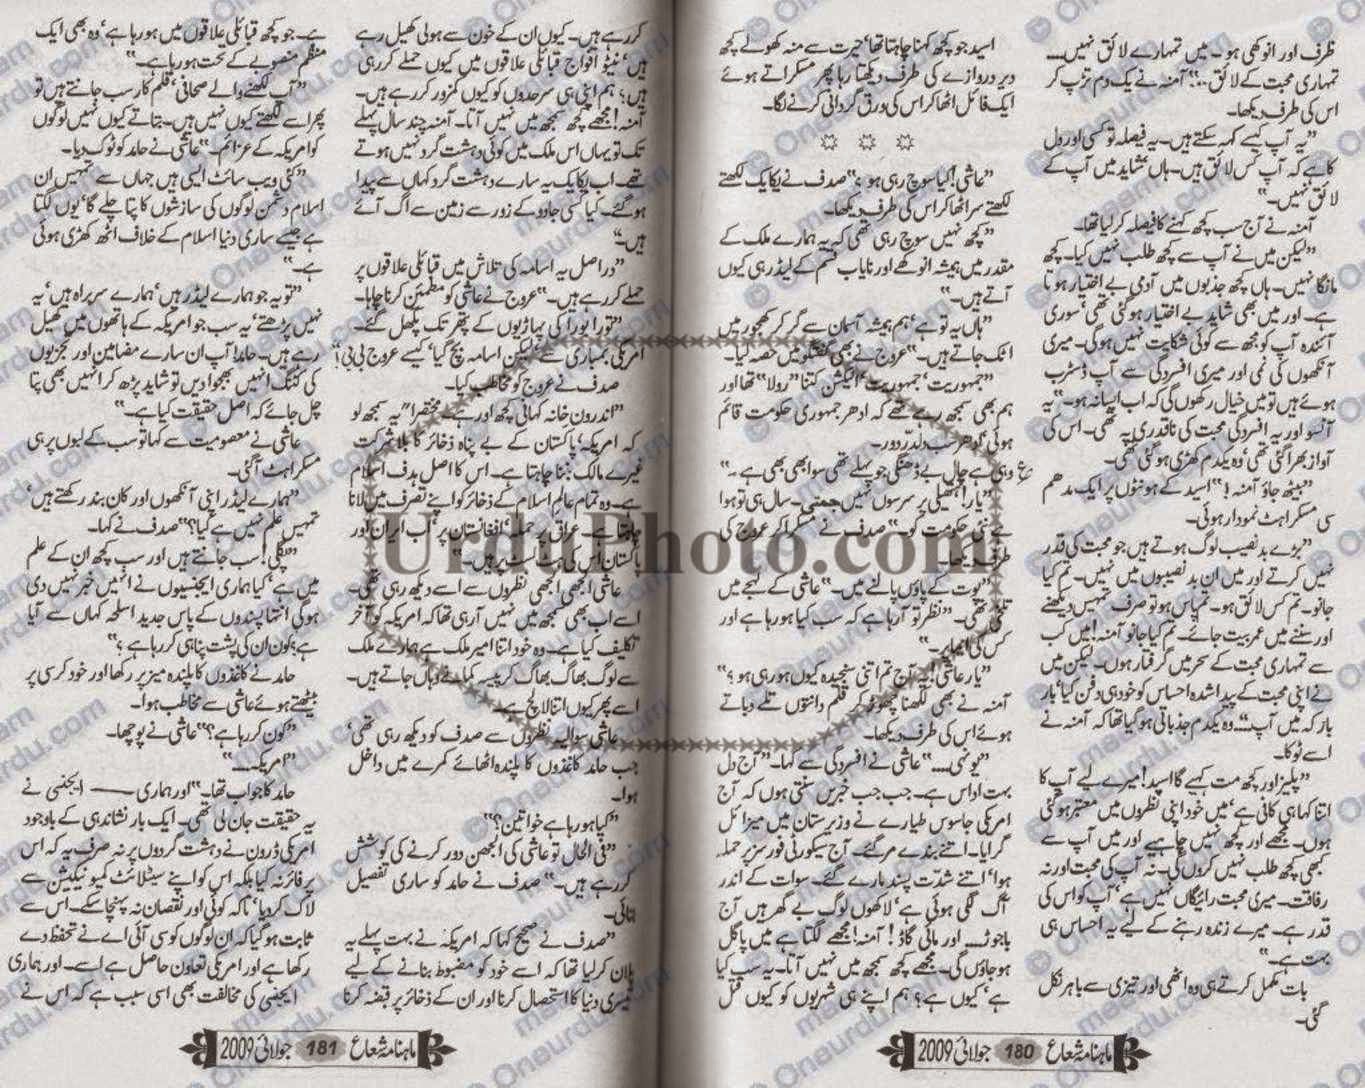 ظرف اور انوکھی ہو۔ میں تمہارے لائق نہیں....
تمہاری محبت کے لائق...." آمنہ نے یک دم تڑپ کر
اس کی طرف دیکھا۔
"یہ آپ کیسے کہہ سکتے ہیں۔ یہ فیصلہ تو کسی اور دل
کا ہے کہ آپ کس لائق ہیں۔ ہاں شاید میں آپ کے
لائق نہیں۔"
آمنہ نے آج سب کچھ کہنے کا فیصلہ کر لیا تھا۔
"لیکن میں نے آپ سے کچھ طلب نہیں کیا۔ کچھ
مانگا نہیں۔ ہاں کچھ جذبوں میں آدمی بے اختیار ہوتا
ہے۔ اور میں بھی شاید بے اختیار ہو گئی تھی، سوری
آئندہ آپ کو مجھ سے کوئی شکایت نہیں ہوگی۔ میری
آنکھوں کی نمی اور میری افسردگی سے آپ ڈسٹرب
ہوئے ہیں تو میں خیال رکھوں گی کہ اب ایسا نہ ہو۔ یہ
آنسو اور یہ افسردگی محبت کی ناقدری پہ تھی۔" اس کی
آواز بھرا گئی تھی، وہ یکدم کھڑی ہو گئی تھی۔
"بیٹھ جاؤ آمنہ!" اسید کے ہونٹوں پر ایک مدھم
سی مسکراہٹ نمودار ہوئی۔
"بڑے بدنصیب لوگ ہوتے ہیں جو محبت کی قدر
نہیں کرتے اور میں ان بدنصیبوں میں نہیں۔ تم کیا
جانو۔ تم کس لائق ہو۔ تم پاس ہو تو صرف تمہیں دیکھنے
اور سننے میں عمر بیت جائے۔ تم کیا جانو آمنہ! میں کب
سے تمہاری محبت کے سحر میں گرفتار ہوں۔ لیکن میں
نے اپنی محبت کے پیدا شدہ احساس کو خود ہی دفن کیا، بار
بار کہ میں آپ...." وہ یکدم جذباتی ہو گیا تھا کہ آمنہ نے
اسے ٹوکا۔
"پلیز اور کچھ مت کہیے گا اسید! میرے لیے آپ کا
اتنا کہا ہی کافی ہے، میں خود اپنی نظروں میں معتبر ہو گئی
ہوں۔ مجھے اور کچھ نہیں چاہیے اور میں آپ سے
کبھی کچھ طلب نہیں کروں گی۔ نہ آپ کی محبت اور نہ
رفاقت۔ میری محبت رائیگاں نہیں ہے، آپ کو اس کی
قدر ہے۔ میرے زندہ رہنے کے لیے یہ احساس ہی
بہت ہے۔"
بات مکمل کرتے ہی وہ اٹھی اور تیزی سے باہر نکل
گئی۔
اسید جو کچھ کہنا چاہتا تھا، حیرت سے منہ کھولے کچھ
دیر دروازے کی طرف دیکھتا رہا پھر مسکراتے ہوئے
ایک فائل اٹھا کر اس کی ورق گردانی کرنے لگا۔
"عاشی! کیا سوچ رہی ہو؟" صدف نے یکایک لکھتے
لکھتے سر اٹھا کر اس کی طرف دیکھا۔
"کچھ نہیں سوچ رہی تھی کہ یہ ہمارے ملک کے
مقدر میں ہمیشہ انوکھے اور نایاب قسم کے لیڈر ہی کیوں
آتے ہیں۔"
"ہاں یہ تو ہے، ہم ہمیشہ آسمان سے گر کر کھجور میں
اٹک جاتے ہیں۔" عروج نے بھی گفتگو میں حصہ لیا۔
"جمہوریت، جمہوریت، الیکشن کتنا "رولا" تھا اور
ہم بھی سمجھ رہے تھے کہ ادھر جمہوری حکومت قائم
ہوئی ادھر سب دلدر دور۔
ع وہی ہے چال بے ڈھنگی جو پہلے تھی سو اب بھی ہے۔"
"یار! ہتھیلی پر سرسوں نہیں جمتی۔ سال ہی تو ہوا
ہے نئی حکومت کو۔" صدف نے مسکرا کر عروج کی
طرف دیکھا۔
"پوت کے پاؤں پالنے میں۔" عاشی کے لہجے میں
تلخی تھی۔ "نظر تو آرہا ہے کہ سب کیا ہو رہا ہے اور
کس کی ایما پر۔"
"یار عاشی! یہ آج تم اتنی سنجیدہ کیوں ہو رہی ہو؟"
آمنہ نے بھی لکھنا چھوڑ کر قلم دانتوں تلے دباتے
ہوئے اس کی طرف دیکھا۔
"یونہی...." عاشی نے افسردگی سے کہا۔ "آج دل
بہت اداس ہے۔ جب جب خبریں سنتی ہوں کہ آج
امریکی جاسوس طیارے نے وزیرستان میں میزائل
گرایا۔ اتنے بندے مر گئے۔ آج سیکورٹی فورسز پر حملہ
ہوا، اتنے شدت پسند مارے گئے۔ سوات کے اندر
آگ لگی ہوئی ہے، لاکھوں لوگ بے گھر ہیں آج
باجوڑ.... اور مائی گاڈ! آمنہ! مجھے لگتا ہے میں پاگل
ہو جاؤں گی۔ مجھے کچھ سمجھ میں نہیں آتا۔ یہ سب کیا
ہے، کیوں ہے؟ ہم اپنے ہی شہریوں کو کیوں قتل
ماہنامہ شعاع 180 جولائی 2009
کر رہے ہیں۔ کیوں ان کے خون سے ہولی کھیل رہے
ہیں، نیٹو افواج قبائلی علاقوں میں کیوں حملے کر رہی
ہیں؟ ہم اپنی ہی سرحدوں کو کیوں کمزور کر رہے ہیں۔
آمنہ! مجھے کچھ سمجھ میں نہیں آتا۔ آمنہ چند سال پہلے
تک تو یہاں اس ملک میں کوئی دہشت گرد نہیں ہوتے
تھے۔ اب یکایک یہ سارے دہشت گرد کہاں سے پیدا
ہو گئے۔ کیا کسی جادو کے زور سے زمین سے اگ آئے
ہیں۔"
"دراصل یہ اسامہ کی تلاش میں قبائلی علاقوں پر
حملے کر رہے ہیں۔" عروج نے عاشی کو مطمئن کرنا چاہا۔
"تورا بورا کی پہاڑیوں کے پتھر تک پگھل گئے۔
امریکی بمباری سے لیکن اسامہ بچ گیا، کیسے عروج بی بی!"
صدف نے عروج کو مخاطب کیا۔
"اندرون خانہ کہانی کچھ اور ہے۔ مختصراً "یہ سمجھ لو
کہ امریکہ، پاکستان کے بے پناہ ذخائر کا بلاشرکت
غیرے مالک بننا چاہتا ہے۔ اس کا اصل ہدف اسلام
ہے۔ وہ تمام عالم اسلام کے ذخائر کو اپنے تصرف میں لانا
چاہتا ہے۔ عراق پر حملہ، افغانستان پر، اب ایران اور
پاکستان اس کی ہٹ پر ہیں۔"
عاشی الجھی الجھی نظروں سے اسے دیکھ رہی تھی۔
اسے اب بھی سمجھ میں نہیں آرہی تھا کہ امریکہ کو آخر
تکلیف کیا ہے۔ وہ خود اتنا امیر ملک ہے ہمارے ملک
سے لوگ بھاگ بھاگ کر پیسہ کمانے وہاں جاتے ہیں۔
اسے پھر کیوں اتنا لالچ ہے۔
عاشی سوالیہ نظروں سے صدف کو دیکھ رہی تھی،
جب حامد کاغذوں کا پلندہ اٹھائے کمرے میں داخل
ہوا۔
"کیا ہو رہا ہے خواتین؟"
"فی الحال تو عاشی کی الجھن دور کرنے کی کوشش
کر رہے ہیں۔" صدف نے حامد کو ساری تفصیل
بتائی۔
"صدف نے صحیح کہا کہ امریکہ نے بہت پہلے یہ
پلان کر لیا تھا کہ اسے خود کو مضبوط بنانے کے لیے
تیسری دنیا کا استحصال کرنا اور ان کے ذخائر پر قبضہ کرنا
ہے۔ جو کچھ قبائلی علاقوں میں ہو رہا ہے، وہ بھی ایک
منظم منصوبے کے تحت ہو رہا ہے۔"
"آپ لکھنے والے صحافی، قلم کار سب جانتے ہیں تو
پھر اسے لکھتے کیوں نہیں ہیں۔ بتاتے کیوں نہیں لوگوں
کو امریکہ کے عزائم۔" عاشی نے حامد کو ٹوک دیا۔
"کئی ویب سائٹ ایسی ہیں جہاں سے تمہیں ان
اسلام دشمن لوگوں کی سازشوں کا پتا چلے گا، یوں لگتا
ہے جیسے ساری دنیا اسلام کے خلاف اٹھ کھڑی ہوئی
ہے۔"
"تو یہ جو ہمارے لیڈر ہیں، ہمارے سربراہ ہیں، یہ
نہیں پڑھتے، یہ سب جو امریکہ کے ہاتھوں میں کھیل
رہے ہیں۔ حامد! آپ ان سارے مضامین اور تجزیوں
کی کٹنگ انہیں بھجوا دیں تو شاید پڑھ کر انہیں بھی پتا
چل جائے کہ اصل حقیقت کیا ہے۔"
عاشی نے معصومیت سے کہا تو سب کے لبوں پر ہی
مسکراہٹ آگئی۔
"ہمارے لیڈر اپنی آنکھوں اور کان بند رکھتے ہیں،
تمہیں علم نہیں ہے کیا؟" صدف نے کہا۔
"پگلی! سب جانتے ہیں اور سب کچھ ان کے علم
میں ہے، کیا ہماری ایجنسیوں نے انہیں خبر نہیں دی
ہوگی انتہا پسندوں کے پاس جدید اسلحہ کہاں سے آیا
ہے؟ کون ان کی پشت پناہی کر رہا ہے؟"
حامد نے کاغذوں کا پلندہ میز پر رکھا اور خود کرسی پر
بیٹھتے ہوئے عاشی سے مخاطب ہوا۔
"کون کر رہا ہے؟" عاشی نے پوچھا۔
"امریکہ...."
حامد کا جواب تھا۔ "اور ہماری —— ایجنسی نے
یہ حقیقت جان لی تھی۔ ایک بار نشاندہی کے باوجود
امریکی ڈرون نے دہشت گردوں پر نہ صرف یہ کہ اس
پر فائر نہ کیا بلکہ اس کو اپنے سیٹلائٹ کمیونیکیشن سے
لاک کر دیا، تاکہ کوئی اور نقصان نہ پہنچا سکے۔ اس سے
ثابت ہو گیا کہ ان لوگوں کو سی آئی اے نے تحفظ دے
رکھا ہے اور امریکی تعاون حاصل ہے اسے۔ اور ہماری
ایجنسی کی مخالفت بھی اسی سبب ہے کہ اس نے
ماہنامہ شعاع 181 جولائی 2009
UrduPhoto.com